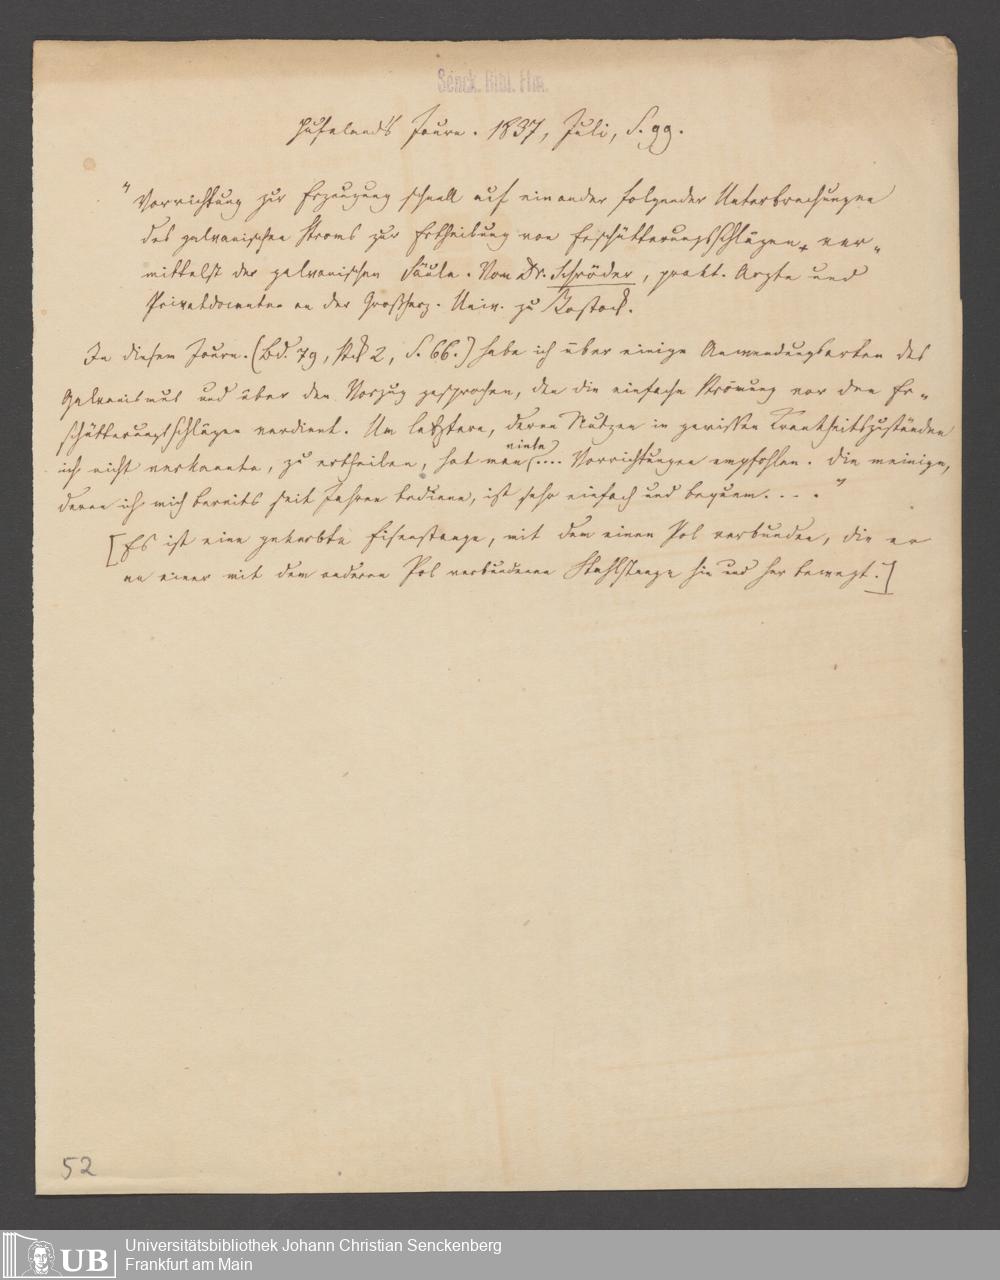 Senck. Bibl. Ffm.
Hufeland's Journ. 1837, Juli, S. 99.
"Vorrichtung zur Erzeugung schnell auf einander folgender Unterbrechungen
des galvanischen Stroms zur Ertheilung von Erschütterungsschlägen, ver-
mittelst der galvanischen Säule. Vom Dr. Schröder, prakt. Arzte und
Privatdocenten an der Großherz. Univ. zu Rostock.
In diesem Journ. (Bd. 79, Stck 2, S. 66.) habe ich über einige Anwendungsarten des
Galvanismus und über den Vorzug gesprochen, den die einfache Strömung vor den Er-
schütterungsschlägen verdient. Um letztere, deren Nutzen in gewissen Krankheitszuständen
ich nicht verkannte, zu ertheilen, hat man viele .... Vorrichtungen empfohlen. Die meinige,
deren ich mich bereits seit Jahren bediene, ist sehr einfach und bequem. . . ."
[Es ist eine gekerbte Eisenstange, mit dem einen Pol verbunden, die er
an einer mit dem anderen Pol verbundenen Stahlstange hin und her bewegt.]
52
UB
Universitätsbibliothek Johann Christian Senckenberg
Frankfurt am Main